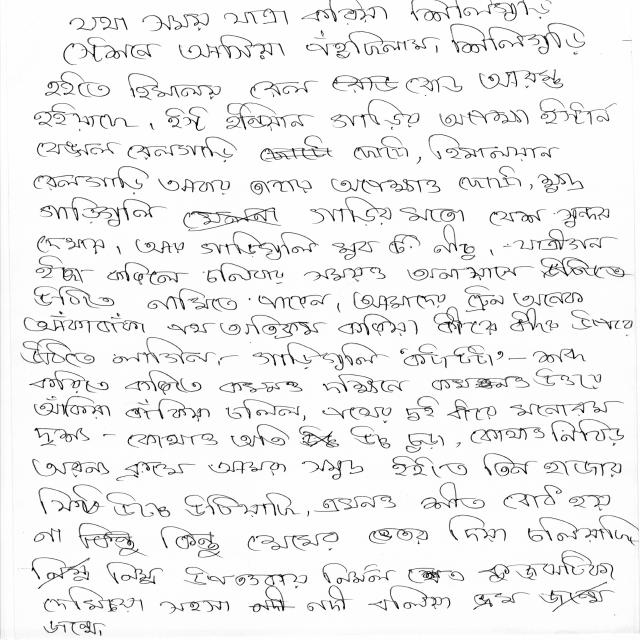 যথা সময় যাত্রা করিয়া শিলিগুড়ি
স্টেশনে আসিয়া পঁহুছিলাম, শিলিগুড়ি
হইতে হিমালয় রেল রোড আরম্ভ
হইয়াছে, ইস্ট ইন্ডিয়ান গাড়ির অপেক্ষা ইস্টার্ন
বেঙ্গল রেলগাড়ি ছোট, হিমালয়ান
রেলগাড়ি আবার তাহার অপেক্ষাও ছোট, ক্ষুদ্র
গাড়িগুলি খেলনা গাড়ির মতো বেশ সুন্দর
দেখায়, আর গাড়িগুলি খুব নীচু, যাত্রীগন
ইচ্ছা করিলে চলিবার সময়ও অনায়াসে উঠিতে
উঠিতে নামিতে পারেন, আমাদের ট্রেন অনেক
আঁকাবাঁকা পথ অতিক্রম করিয়া ধীরে ধীরে উপরে
উঠিতে লাগিল, গাড়িগুলি কটাটটা - শব্দ
করিতে করিতে কখনও দক্ষিনে কখনও উত্তরে
আঁকিয়া বাঁকিয়া চলিল, পথের দুই ধারে মনোরম
দৃশ্য - কোথাও অতি উচ্চ চূড়া, কোথাও নিবিড়
অরন্য ক্রমে আমরা সমুদ্র হইতে তিন হাজার
ফিট উচ্চে উঠিয়াছি, এখনও শীত বোধ হয়
না কিন্তু কিন্তু মেঘের ভেতর দিয়া চলিয়াছি
নিম্ন নিম্ন উপত্যকায় নির্মল শ্বেত কুজ্ঝটিকা
দেখিয়া সহসা নদী নদী বলিয়া ভ্রম জন্মে
জন্মে,